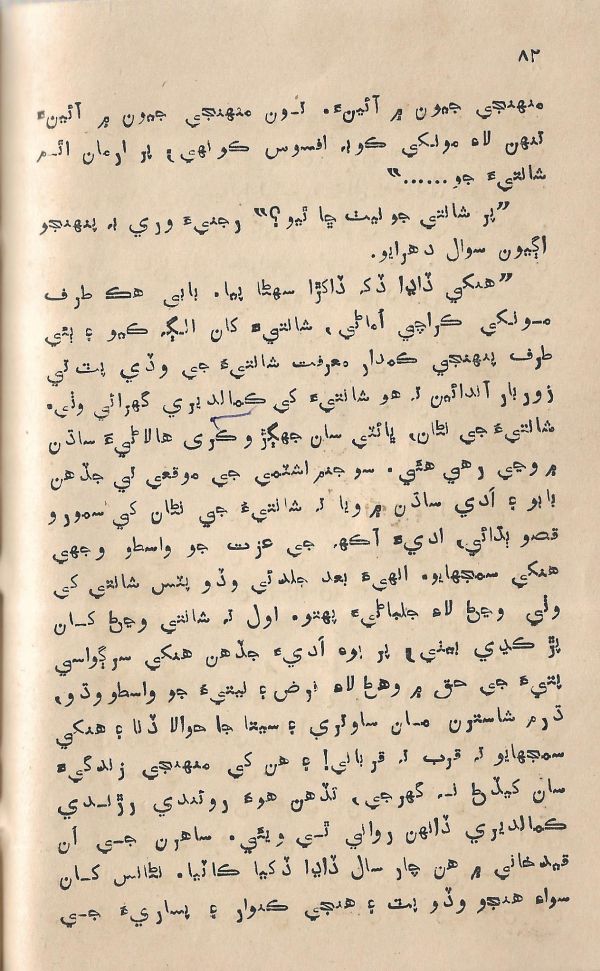 ۸۲
منهنجي جيون ۾ آئينءَ. تون منهنجي جيون ۾ آئينءَ
تنهن لاءِ مونکي ڪوبہ افسوس ڪونهي، پر ارمان اٿم
شانتيءَ جو......"
"پر شانتي جو نيٺ ڇا ٿيو؟" رجنيءَ وري بہ پنهنجو
اڳيون سوال دهرايو.
"هنکي ڏاڍا ڏک ڏاکڙا سهڻا پيا. بابي هڪ طرف
مونکي ڪراچي اُماڻي، شانتيءَ کان الڳ ڪيو ۽ ٻئي
طرف پنهنجي ڪمدار معرفت شانتيءَ جي وڏي پٽ تي
زور بار آندائين تہ هو شانتيءَ کي ڪمالديري گهرائي وٺي.
شانتيءَ جي نڻان، ڀائٽي سان جهڳڙو ڪري هالاڻيءَ ساڌن
۾ وڃي رهي هئي. سو جنم اشٽمي جي موقعي تي جڏهن
بابو ۽ اَدي ساڌن ۾ ويا تہ شانتيءَ جي نڻان کي سمورو
قصو ٻڌائي، اديءَ اَکهہ جي عزت جو واسطو وجهي
هنکي سمجهايو. انهيءَ بعد جلدئي وڏو پٽس شانتي کي
وٺي وڃڻ لاءِ جلباڻيءَ پهتو. اول تہ شانتي وڃڻ کان
پڙ ڪڍي بيٺي، پر پوءِ اَديءَ جڏهن هنکي سرڳواسي
پتيءَ جي حق ۾ وهڻ لاءِ فرض ۽ نيتيءَ جو واسطو وڌو،
ڌرم شاسترن مان ساوتري ۽ سيتا جا حوالا ڏنا ۽ هنکي
سمجهايو تہ قرب تہ قرباني! ۽ هن کي منهنجي زندگيءَ
سان کيڏڻ نہ گهرجي، تڏهن هوءَ روئندي رڙندي
ڪمالديري ڏانهن رواني ٿي ويئي. ساهرن جي اُن
قيدخاني ۾ هن چار سال ڏاڍا ڏکيا ڪاٽيا. نڻانس کان
سواءِ هنجو وڏو پٽ ۽ هنجي ڪنوار ۽ پساريءَ جي